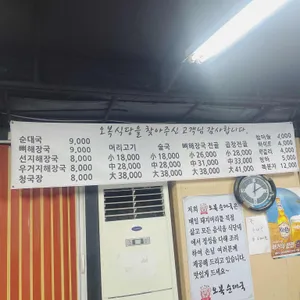 오복식당을 찾아주신 고객님 감사합니다.
순대국 9,000
뼈해장국 9,000
선지해장국 8,000
우거지해장국 8,000
청국장 8,000
머리고기
小 18,000
中 28,000
大 38,000
술국
小 18,000
中 28,000
大 38,000
뼈해장국 전골
小 26,000
中 31,000
大 38,000
곱창전골
小 28,000
中 33,000
大 41,000
막걸리
복분자 12,000
저희 오복 순대국은
매일 돼지머리를 직접
삶고 모든 음식을 식당내
에서 정성을 다해 조리
하여 손님 여러분께
제공해 드리고 있습니다.
맛있게 드세요~
오복 순대국